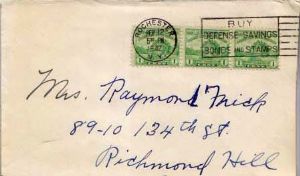 ROCHESTER
N.Y.
BUY
DEFENSE SAVINGS
BONDS AND STAMPS
Mrs. Raymond Mick
89-10 134th St.
Richmond Hill